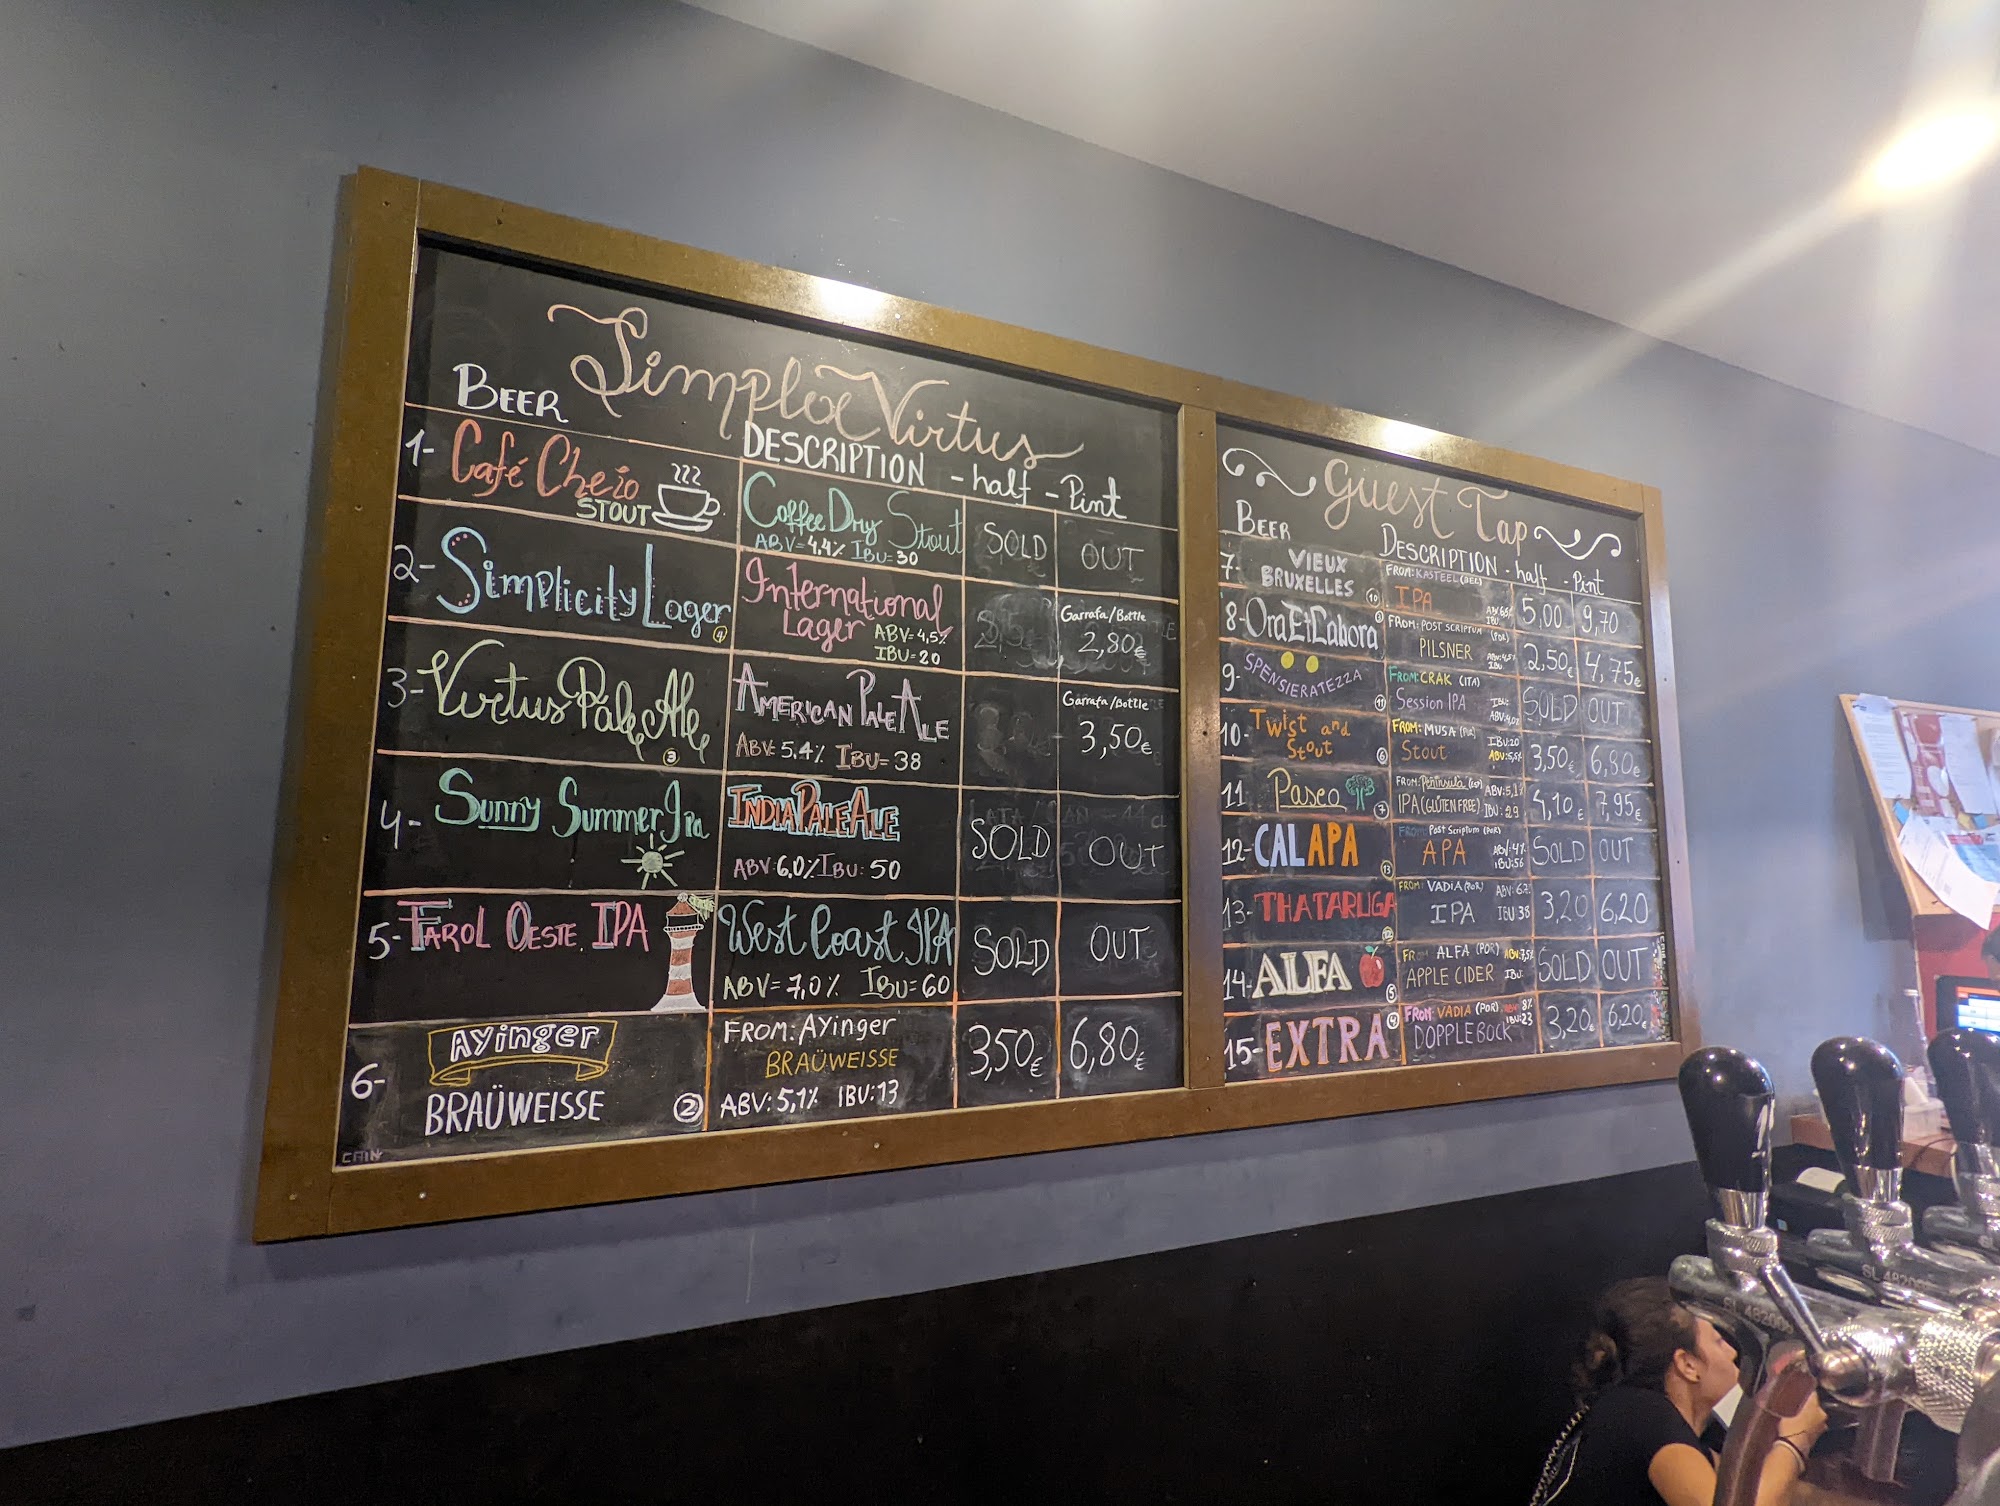 Simplox Virtus
BEER DESCRIPTION - half - Pint
1- Café Cheio STOUT Coffee Dry Stout ABV=4,4% IBU=30 SOLD OUT
2- Simplicity Lager 4 International Lager ABV=4,5% IBU=20 Garrafa/Bottle 2,80€
3- Virtus Pale Ale 3 AMERICAN PALE ALE ABV=5,4% IBU=38 Garrafa/Bottle 3,50€
4- Sunny Summer Ipa INDIA PALE ALE ABV:6,0% IBU:50 SOLD OUT
5- FAROL OESTE IPA West Coast IPA ABV=7,0% IBU=60 SOLD OUT
6- Ayinger BRAÜWEISSE 2 FROM: Ayinger BRAÜWEISSE ABV:5,1% IBU:13 3,50€ 6,80€
CAIN
Guest Tap
BEER DESCRIPTION - half - Pint
7- VIEUX BRUXELLES 10 FROM: KASTEEL (BEL) IPA IBU 5,00 9,70
8- Ora Et Labora FROM: POST SCRIPTUM (POR) PILSNER IBU: 2,50€ 4,75€
9- SPENSIERATEZZA 11 FROM: CRAK (ITA) Session IPA IBU: SOLD OUT
10- Twist and Stout 6 FROM: MUSA (POR) Stout IBU:20 3,50€ 6,80€
11 Paseo 7 FROM: Península IPA (GLÚTEN FREE) IBU:29 4,10€ 7,95€
12- CALAPA 13 FROM: Post Scriptum (POR) APA IBU:56 SOLD OUT
13- THATARUGA 12 FROM: VADIA (POR) IPA IBU 38 3,20 6,20
14- ALFA 5 FROM ALFA (POR) APPLE CIDER ABV:7,5% IBU: SOLD OUT
15- EXTRA FROM: VADIA (POR) DOPPLEBOCK 8% IBU:23 3,20€ 6,20€